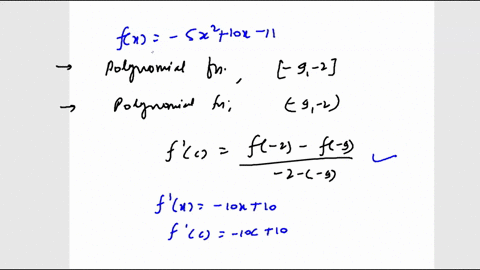 f(x) = -5x²+10x-11
→ Polynomial fn. , [-9,-2]
→ Polynomial fn; (-9,-2)
f'(c) = f(-2) - f(-9) / -2-(-9) ✓
f'(x) = -10x+10
f'(c) = -10c+10